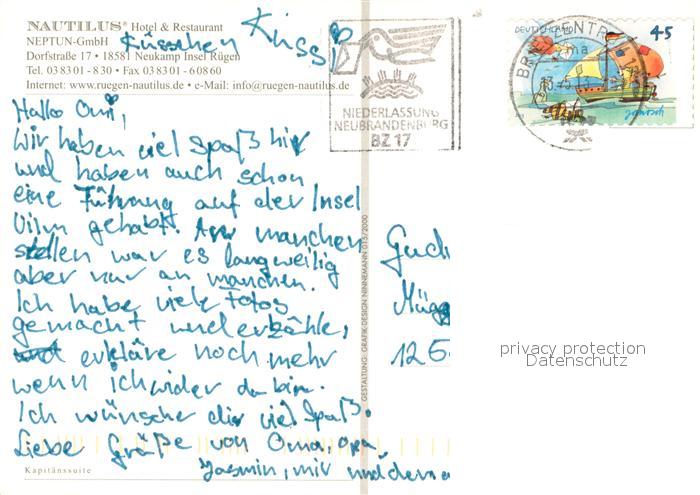 NAUTILUS® Hotel & Restaurant
NEPTUN-GmbH
Dorfstraße 17 • 18581 Neukamp Insel Rügen
Tel. 03 83 01 - 830 • Fax 03 83 01 - 6 08 60
Internet: www.ruegen-nautilus.de • e-Mail: info@ruegen-nautilus.de
Küsschen Kuss
NIEDERLASSUNG
NEUBRANDENBURG
BZ 17
DEUTSCHLAND 45
BRIEFZENTRUM 17
janosch
Hallo Omi,
wir haben viel Spaß hier
und haben auch schon
eine Führung auf der Insel
Vilm gehabt. An manchen
stellen war es langweilig
aber nur an manchen.
Ich habe viele Fotos
gemacht und erzähle,
und erkläre noch mehr
wenn ich wider da bin.
Ich wünsche dir viel Spaß.
Liebe Grüße von Oma, opa,
Jasmin, mir und deine
Gud
Müg
126
GESTALTUNG: GRAFIK-DESIGN NINNEMANN 015/2000
Kapitänssuite
privacy protection
Datenschutz